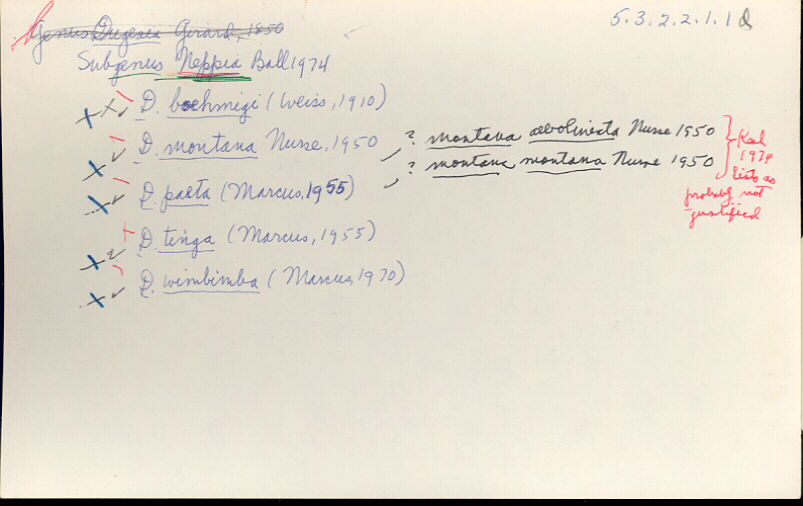 5.3.2.2.1.1d
Genus Dugesia Girard, 1850
Subgenus Neppia Ball 1974
D. boehmigi (Weiss, 1910)
D. montana Nurse, 1950
? montana albolineata Nurse 1950
? montana montana Nurse 1950
1974
lists as
probably not
justified
D. paeta (Marcus, 1955)
D. tinga (Marcus, 1955)
D. wimbimba (Marcus, 1970)